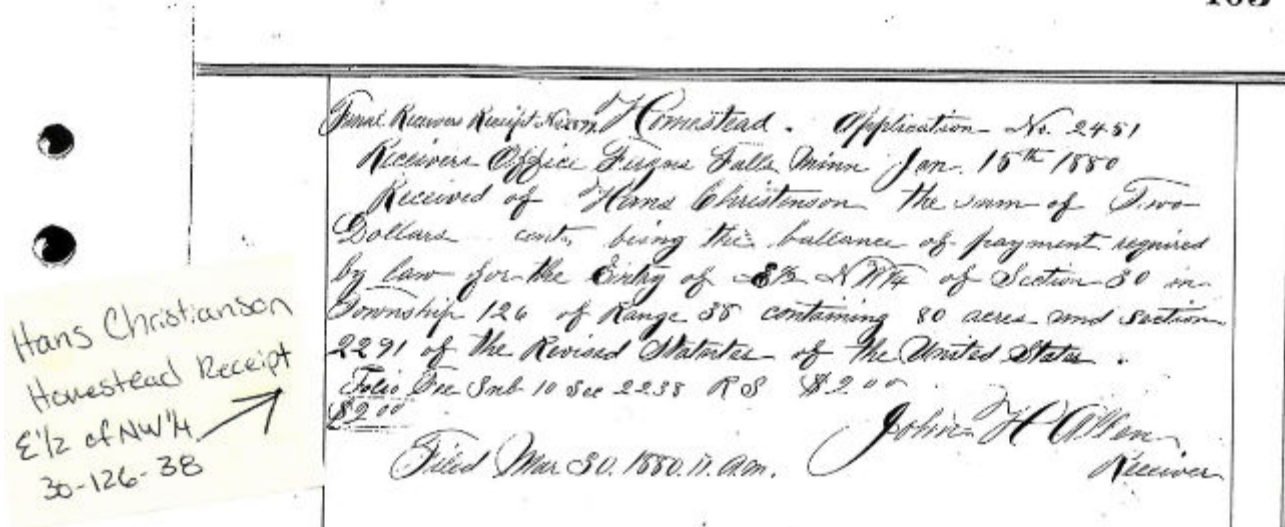 Final Receivers Receipt Homestead. Application No. 2451
Receivers Office Fergus Falls Minn Jan. 15th 1880
Received of Hans Christinson the sum of Two
Dollars cents, being the ballance of payment required
by law for the Entry of E½ NW¼ of Section 30 in
Township 126 of Range 38 containing 80 acres and Section
2291 of the Revised Statutes of the United States.
Folio Fee Sub 10 Sec 2238 R S $2.00
$2.00
John H Allen
Receiver
Filed Mar 30. 1880. 11. a.m.
Hans Christianson
Homestead Receipt
E 1/2 of NW 1/4
30-126-38